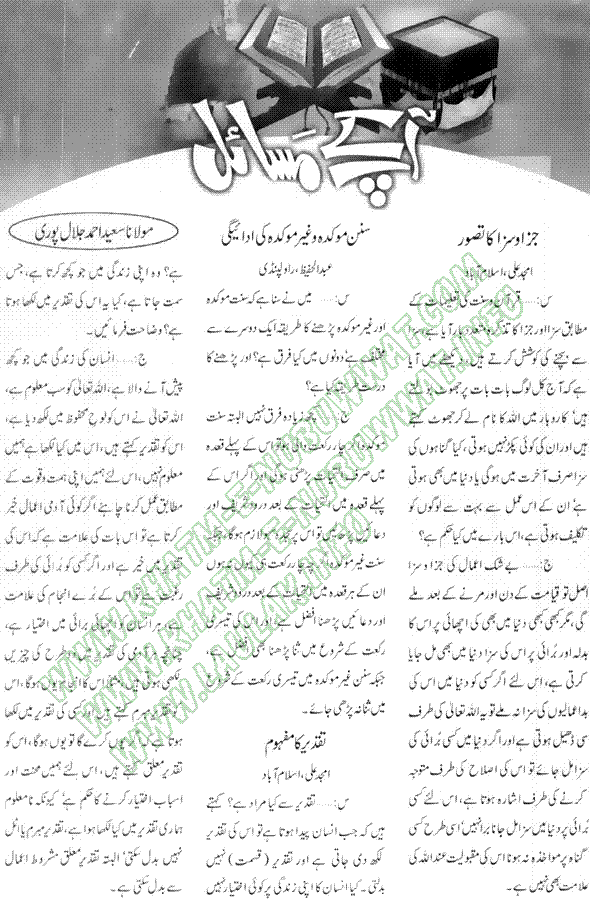 آپ کے مسائل
مولانا سعید احمد جلال پوری
جزا و سزا کا تصور
امجد علی، اسلام آباد
س:...... قرآن و سنت کی تعلیمات کے
مطابق سزا اور جزا کا تذکرہ متعدد بار آیا ہے، سزا
سے بچنے کی کوشش کرتے ہیں، دیکھنے میں آیا
ہے کہ آج کل لوگ بات بات پر جھوٹ بولتے
ہیں، کاروبار میں اللہ کا نام لے کر جھوٹ کہتے
ہیں اور ان کی کوئی پکڑ نہیں ہوتی، کیا گناہوں کی
سزا صرف آخرت میں ہوگی یا دنیا میں بھی ہوتی
ہے؟ ان کے اس عمل سے بہت سے لوگوں کو
تکلیف ہوتی ہے، اس بارے میں کیا حکم ہے؟
ج:...... بے شک اعمال کی جزا و سزا
اصل تو قیامت کے دن اور مرنے کے بعد ملے
گی، مگر کبھی کبھی دنیا میں بھی کی اچھائی پر اس کا
بدلہ اور بُرائی پر اس کی سزا دنیا میں بھی مل جایا
کرتی ہے، اس لئے اگر کسی کو دنیا میں اس کی
بداعمالیوں کی سزا نہ ملے تو یہ اللہ تعالیٰ کی طرف
سے ڈھیل ہوتی ہے اور اگر دنیا میں کسی بُرائی کی
سزا مل جائے تو اس کی اصلاح کی طرف متوجہ
کرنے کی طرف اشارہ ہوتا ہے، اس لئے کسی
بُرائی پر دنیا میں سزا مل جانا بُرا نہیں، اسی طرح کسی
گناہ پر مواخذہ نہ ہونا اس کی مقبولیت عند اللہ کی
علامت بھی نہیں ہے۔
سنن موکدہ و غیر موکدہ کی ادائیگی
عبدالحفیظ، راولپنڈی
س:...... میں نے سنا ہے کہ سنت موکدہ
اور غیر موکدہ پڑھنے کا طریقہ ایک دوسرے سے
مختلف ہے، دونوں میں کیا فرق ہے؟ اور پڑھنے کا
درست طریقہ کیا ہے؟
ج:...... کچھ زیادہ فرق نہیں البتہ سنت
موکدہ اگر چار رکعت والی ہو تو اس کے پہلے قعدہ
میں صرف التحیات پڑھنی ہوگی اور اگر اس کے
پہلے قعدہ میں التحیات کے بعد درود شریف اور
دعائیں پڑھ لیں تو اس پر سجدہ سہو لازم ہوگا، جبکہ
سنت غیر موکدہ اگرچہ چار رکعت ہی کیوں نہ ہوں
ان کے ہر قعدہ میں التحیات کے بعد درود شریف
اور دعائیں پڑھنا افضل ہے، اور اس کی تیسری
رکعت کے شروع میں ثنا پڑھنا بھی افضل ہے،
جبکہ سنن غیر موکدہ میں تیسری رکعت کے شروع
میں ثنا نہ پڑھی جائے۔
تقدیر کا مفہوم
امجد علی، اسلام آباد
س:...... تقدیر سے کیا مراد ہے؟ کہتے
ہیں کہ جب انسان پیدا ہوتا ہے تو اس کی تقدیر
لکھ دی جاتی ہے اور تقدیر (قسمت) نہیں
بدلتی۔ کیا انسان کا اپنی زندگی پر کوئی اختیار نہیں
ہے؟ وہ اپنی زندگی میں جو کچھ کرتا ہے، جس
سمت جاتا ہے، کیا یہ اس کی تقدیر میں لکھا ہوتا
ہے؟ وضاحت فرمائیں۔
ج:...... انسان کی زندگی میں جو کچھ
پیش آنے والا ہے، اللہ تعالیٰ کو سب معلوم ہے،
اللہ تعالیٰ نے اس کو لوحِ محفوظ میں لکھ دیا ہے،
اس کو تقدیر کہتے ہیں، اس میں کیا لکھا ہے ہمیں
معلوم نہیں، اس لئے ہمیں اپنی ہمت و قوت کے
مطابق عمل کرنا چاہئے اگر کوئی آدمی اعمال خیر
کرتا ہے تو اس بات کی علامت ہے کہ اس کی
تقدیر میں خیر ہے اور اگر کسی کو بُرائی کی طرف
رغبت ہے تو اس کے بُرے انجام کی علامت
ہے، ہر انسان کو اچھائی برائی میں اختیار ہے،
چنانچہ آدمی کی تقدیر میں دو طرح کی چیزیں
لکھی ہوتی ہیں، مثلاً اس کا انجام یوں ہوگا، اس
کو تقدیر مبرم کہتے ہیں اور کسی کی تقدیر میں لکھا
ہوتا ہے کہ یوں کرے گا تو یوں ہوگا، اس کو
تقدیر معلق کہتے ہیں، اس لئے ہمیں محنت اور
اسباب اختیار کرنے کا حکم ہے، کیونکہ نامعلوم
ہماری تقدیر میں کیا لکھا ہوا ہے، تقدیر مبرم یا اٹل
نہیں بدل سکتی، البتہ تقدیر معلق مشروط اعمال
سے بدل سکتی ہے۔
WWW.KHATM-E-NUBUWWAT.COM
WWW.KHATM-E-NUBUWWAT.INFO
WWW.LAULAK.INFO